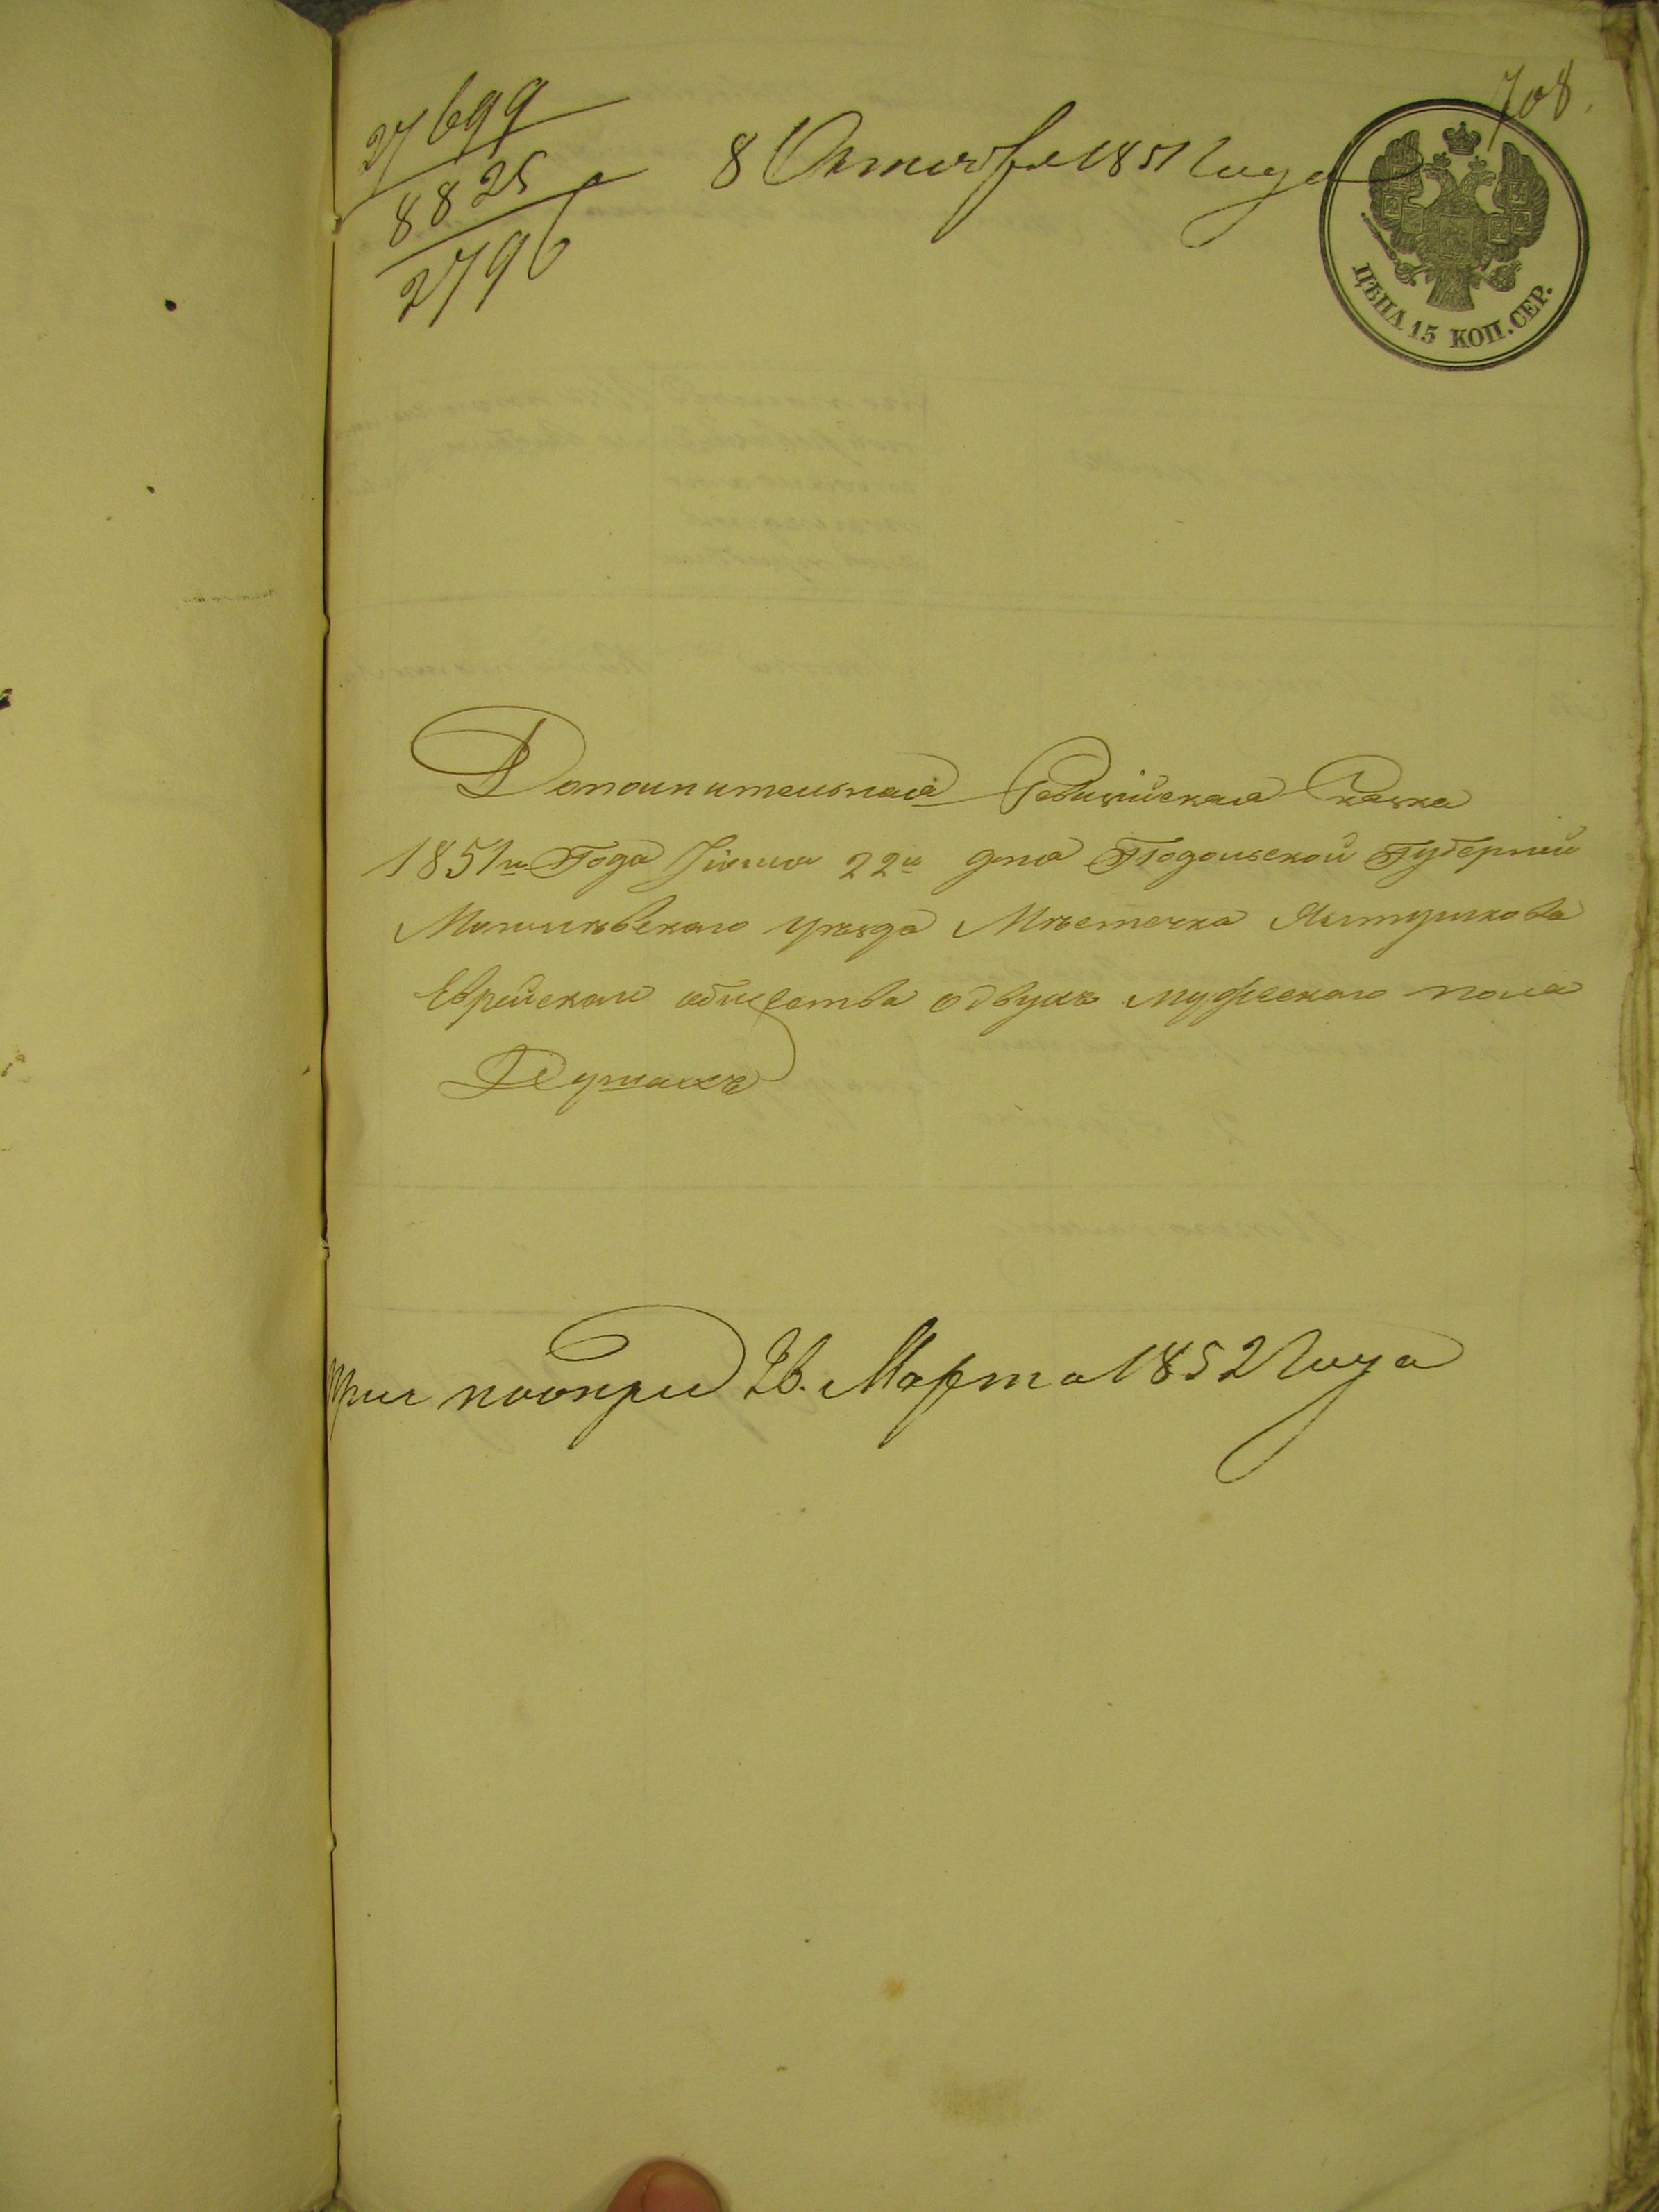 708.
27699
8825
2796
8 Октября 1851 года
ЦѢНА 15 КОП. СЕР.
Дополнительная Ревизийская Сказка
1851го Года Іюня 22го дня Подольской Губерніи
Могилевскаго уѣзда Мѣстечка Ялтушкова
Еврейскаго общества о двухъ мужескаго пола
Душахъ
26. Марта 1852 года